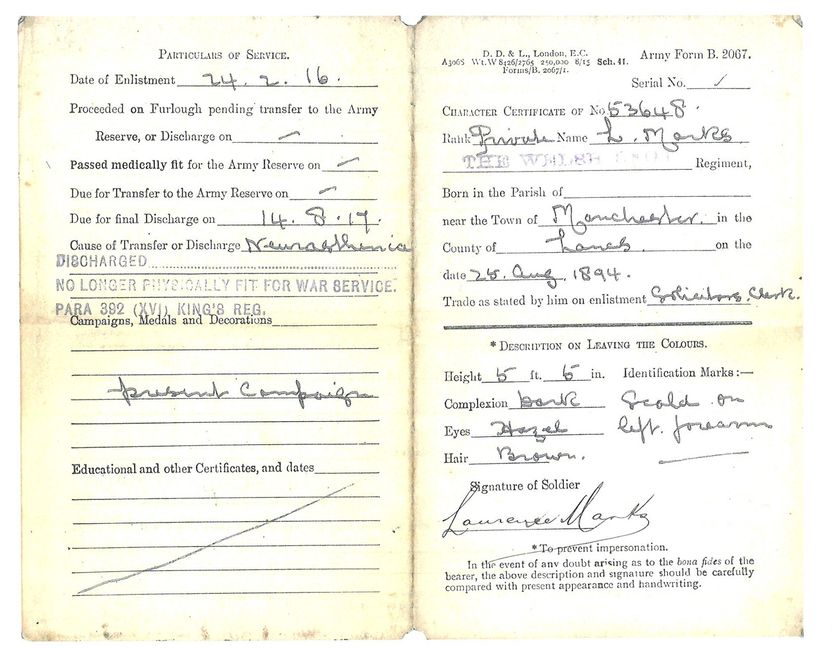 PARTICULARS OF SERVICE.
Date of Enlistment 24. 2. 16.
Proceeded on Furlough pending transfer to the Army
Reserve, or Discharge on
Passed medically fit for the Army Reserve on
Due for Transfer to the Army Reserve on
Due for final Discharge on 14. 8. 17.
Cause of Transfer or Discharge Neurasthenia
DISCHARGED
NO LONGER PHYSICALLY FIT FOR WAR SERVICE.
PARA 392 (XVI) KING'S REG.
Campaigns, Medals and Decorations
present Campaign
Educational and other Certificates, and dates
D. D. & L., London, E.C.
A3068 Wt. W8126/2765 250,000 8/15 Sch. 41. Army Form B. 2067.
Forms/B. 2067/1.
Serial No.
CHARACTER CERTIFICATE OF No 53648.
Rank Private Name L. Marks.
THE WELSH Regiment,
Born in the Parish of
near the Town of Manchester. in the
County of Lancs. on the
date 25. Aug, 1894.
Trade as stated by him on enlistment Solicitors, Clerk.
* DESCRIPTION ON LEAVING THE COLOURS.
Height 5 ft. 5 in. Identification Marks :—
Complexion Dark Scald on
Eyes Hazel left. forearm
Hair Brown.
Signature of Soldier
Laurence Marks
* To prevent impersonation.
In the event of any doubt arising as to the bona fides of the
bearer, the above description and signature should be carefully
compared with present appearance and handwriting.